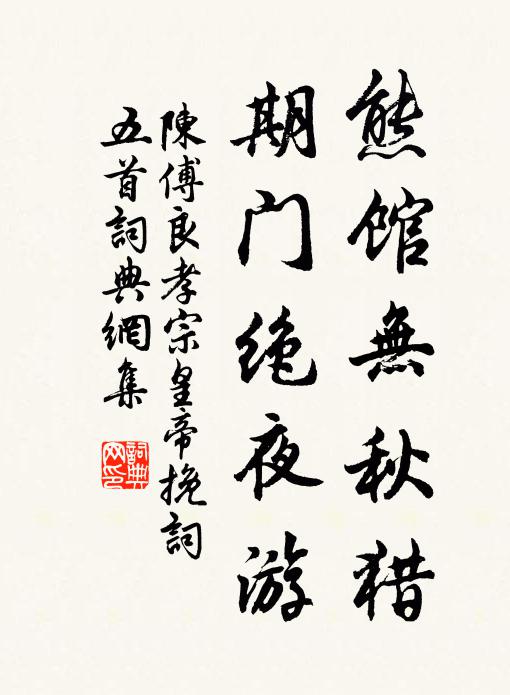 熊馆無秋猎
期门绝夜游
陳傅良孝宗皇帝挽詞
五首詞典網集
詞典
网印